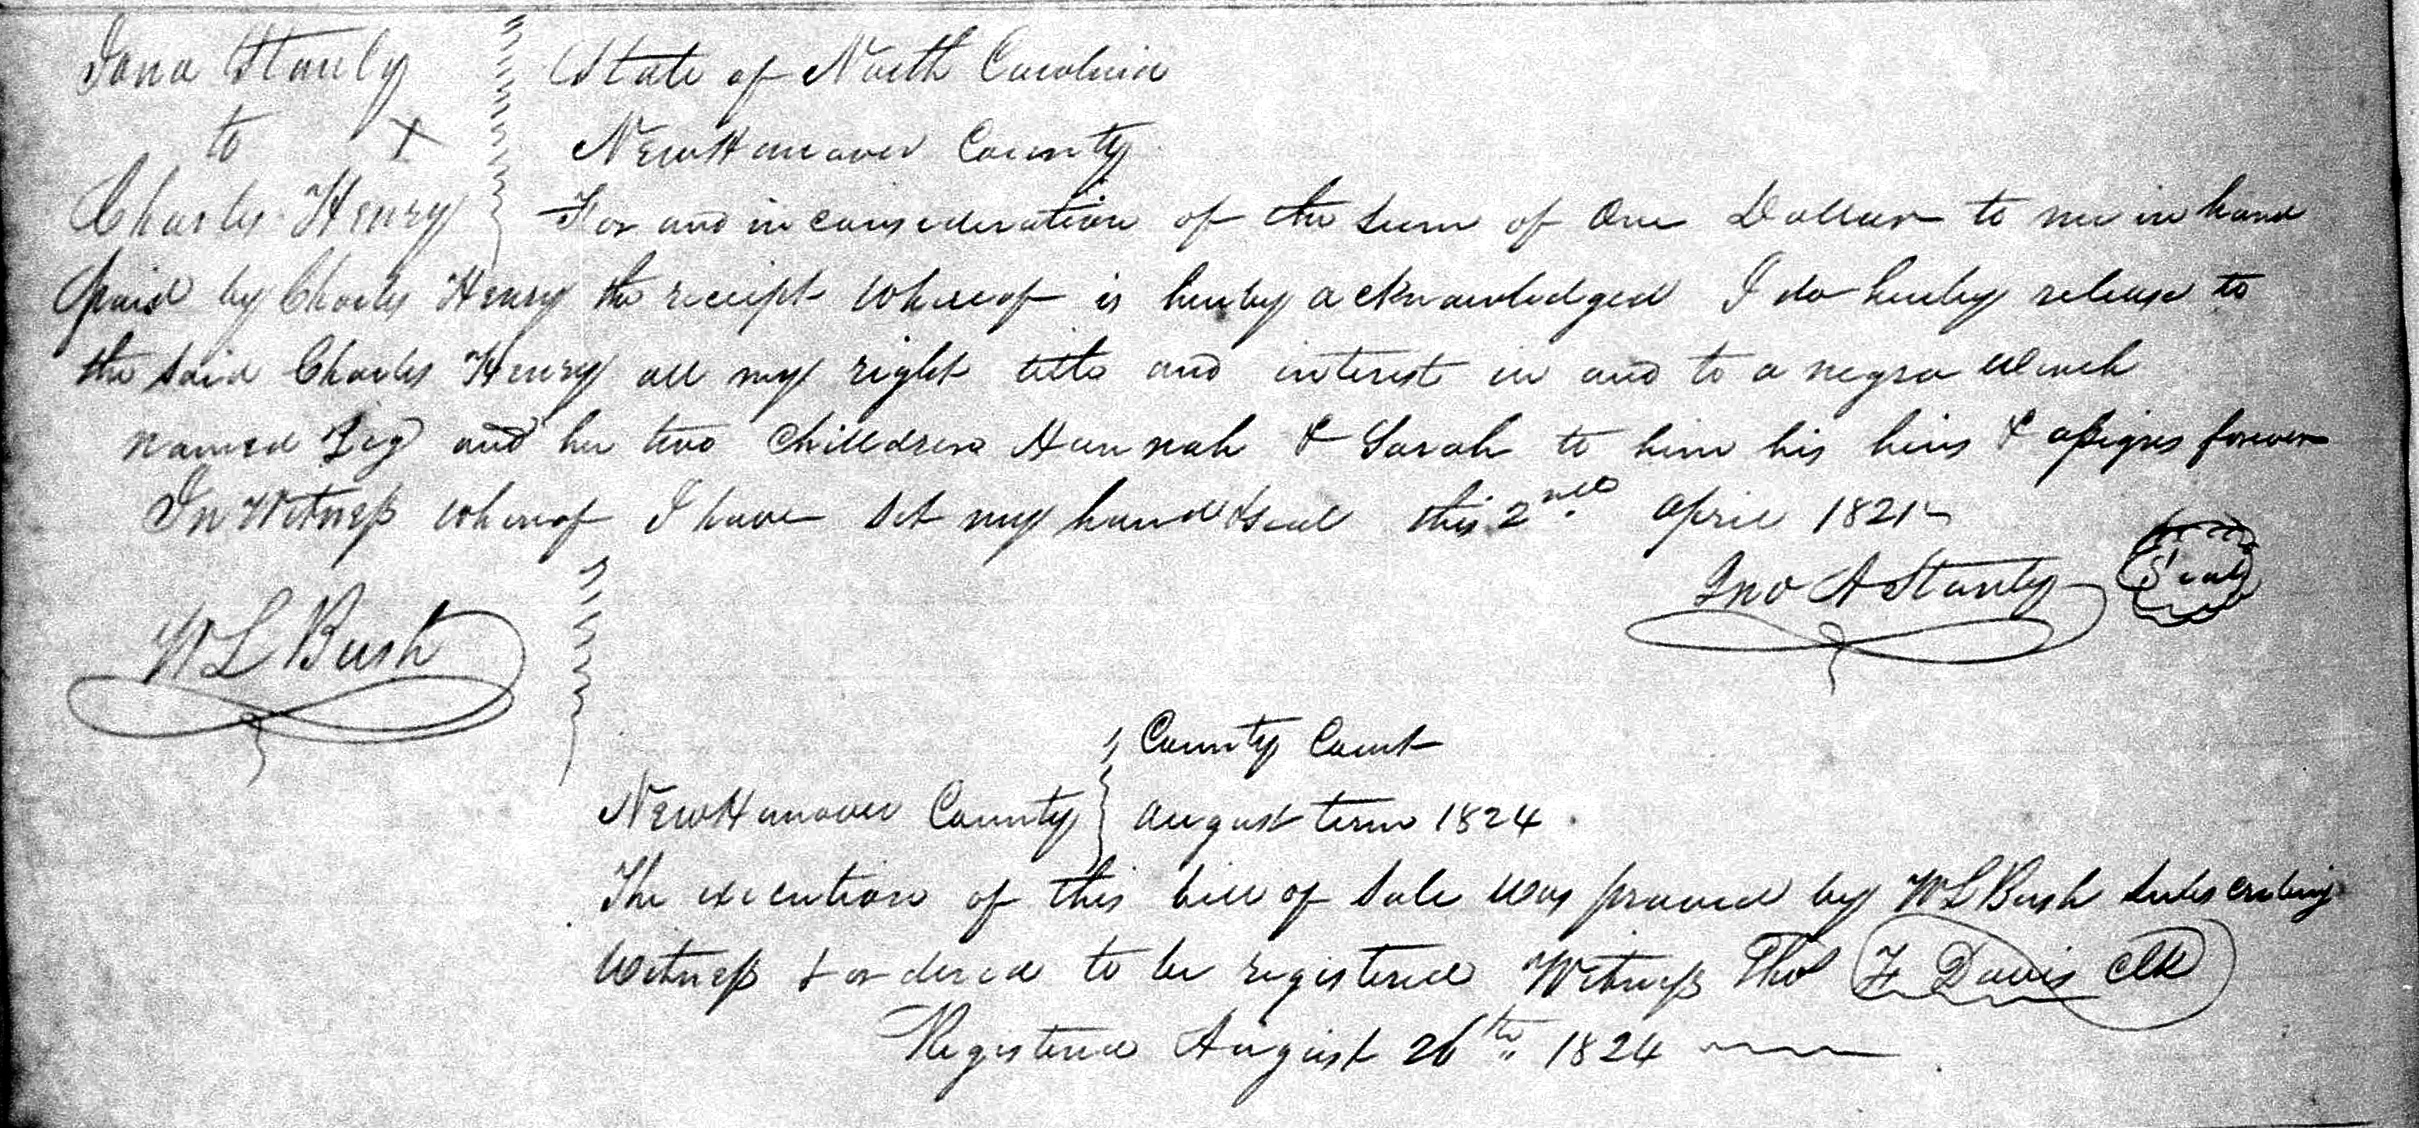 Stanly
to X
Charles Henry
State of North Carolina
New Hanover County
For and in consideration of the sum of One Dollar to me in hand
paid by Charles Henry the receipt whereof is hereby acknowledged I do hereby release to
the said Charles Henry all my right title and interest in and to a negro wench
named and her two Childdren Hannah & Sarah to him his heirs & assigns forever
In Witness whereof I have set my hand & seal this 2nd april 1821
Jno A Stanly Seal
W L Bush
County Court
New Hanover County august term 1824
The execution of this bill of sale was proved by W L Bush subscribing
Witness & ordered to be registered Witness Thos F Davis Clk
Registered August 26th 1824